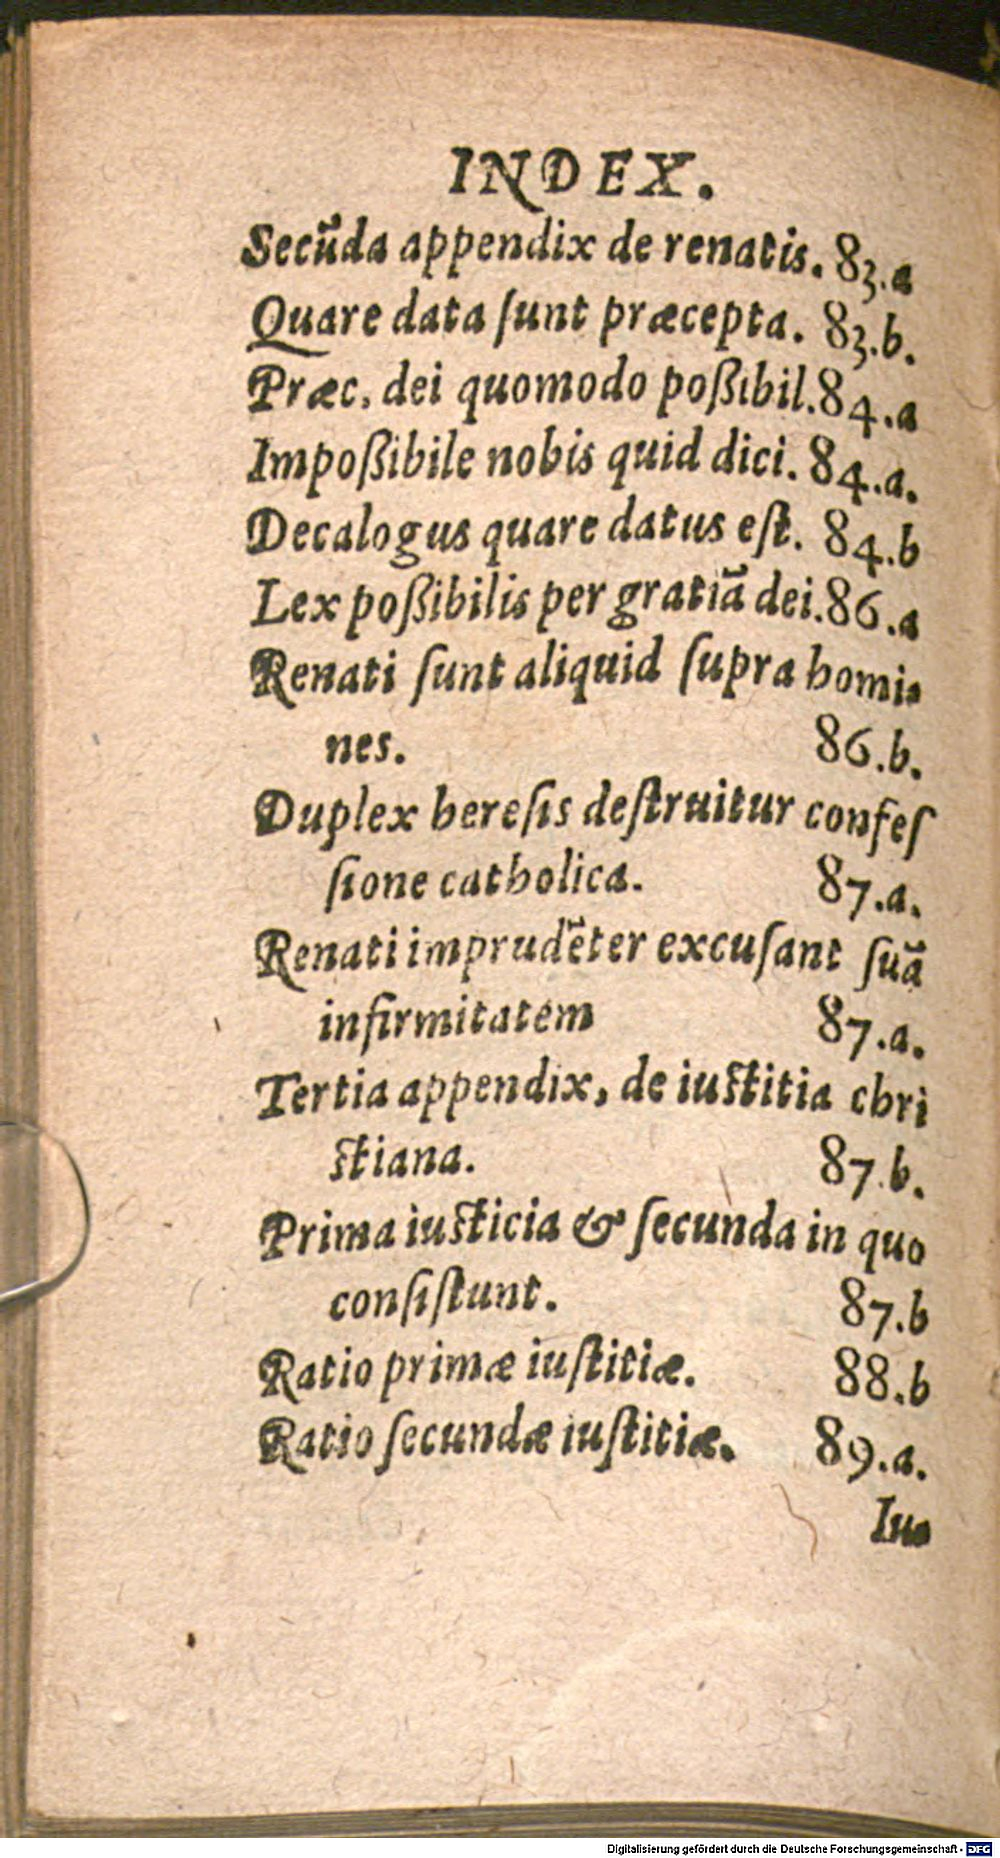 INDEX.
Secũda appendix de renatis. 83.a
Quare data ſunt præcepta. 83.b.
Præc. dei quomodo poßibil.84.a
Impoßibile nobis quid dici. 84.a.
Decalogus quare datus eſt. 84.b
Lex poßibilis per gratiã dei.86.a
Renati ſunt aliquid ſupra homi-
nes. 86.b.
Duplex hereſis deſtruitur confeſ
ſione catholica. 87.a.
Renati imprudẽter excuſant ſuã
infirmitatem 87.a.
Tertia appendix, de iuſtitia chri
ſtiana. 87.b.
Prima iuſticia & ſecunda in quo
conſiſtunt. 87.b
Ratio primæ iuſtitiæ. 88.b
Ratio ſecundæ iuſtitiæ. 89.a.
Iu-
Digitalisierung gefördert durch die Deutsche Forschungsgemeinschaft - DFG